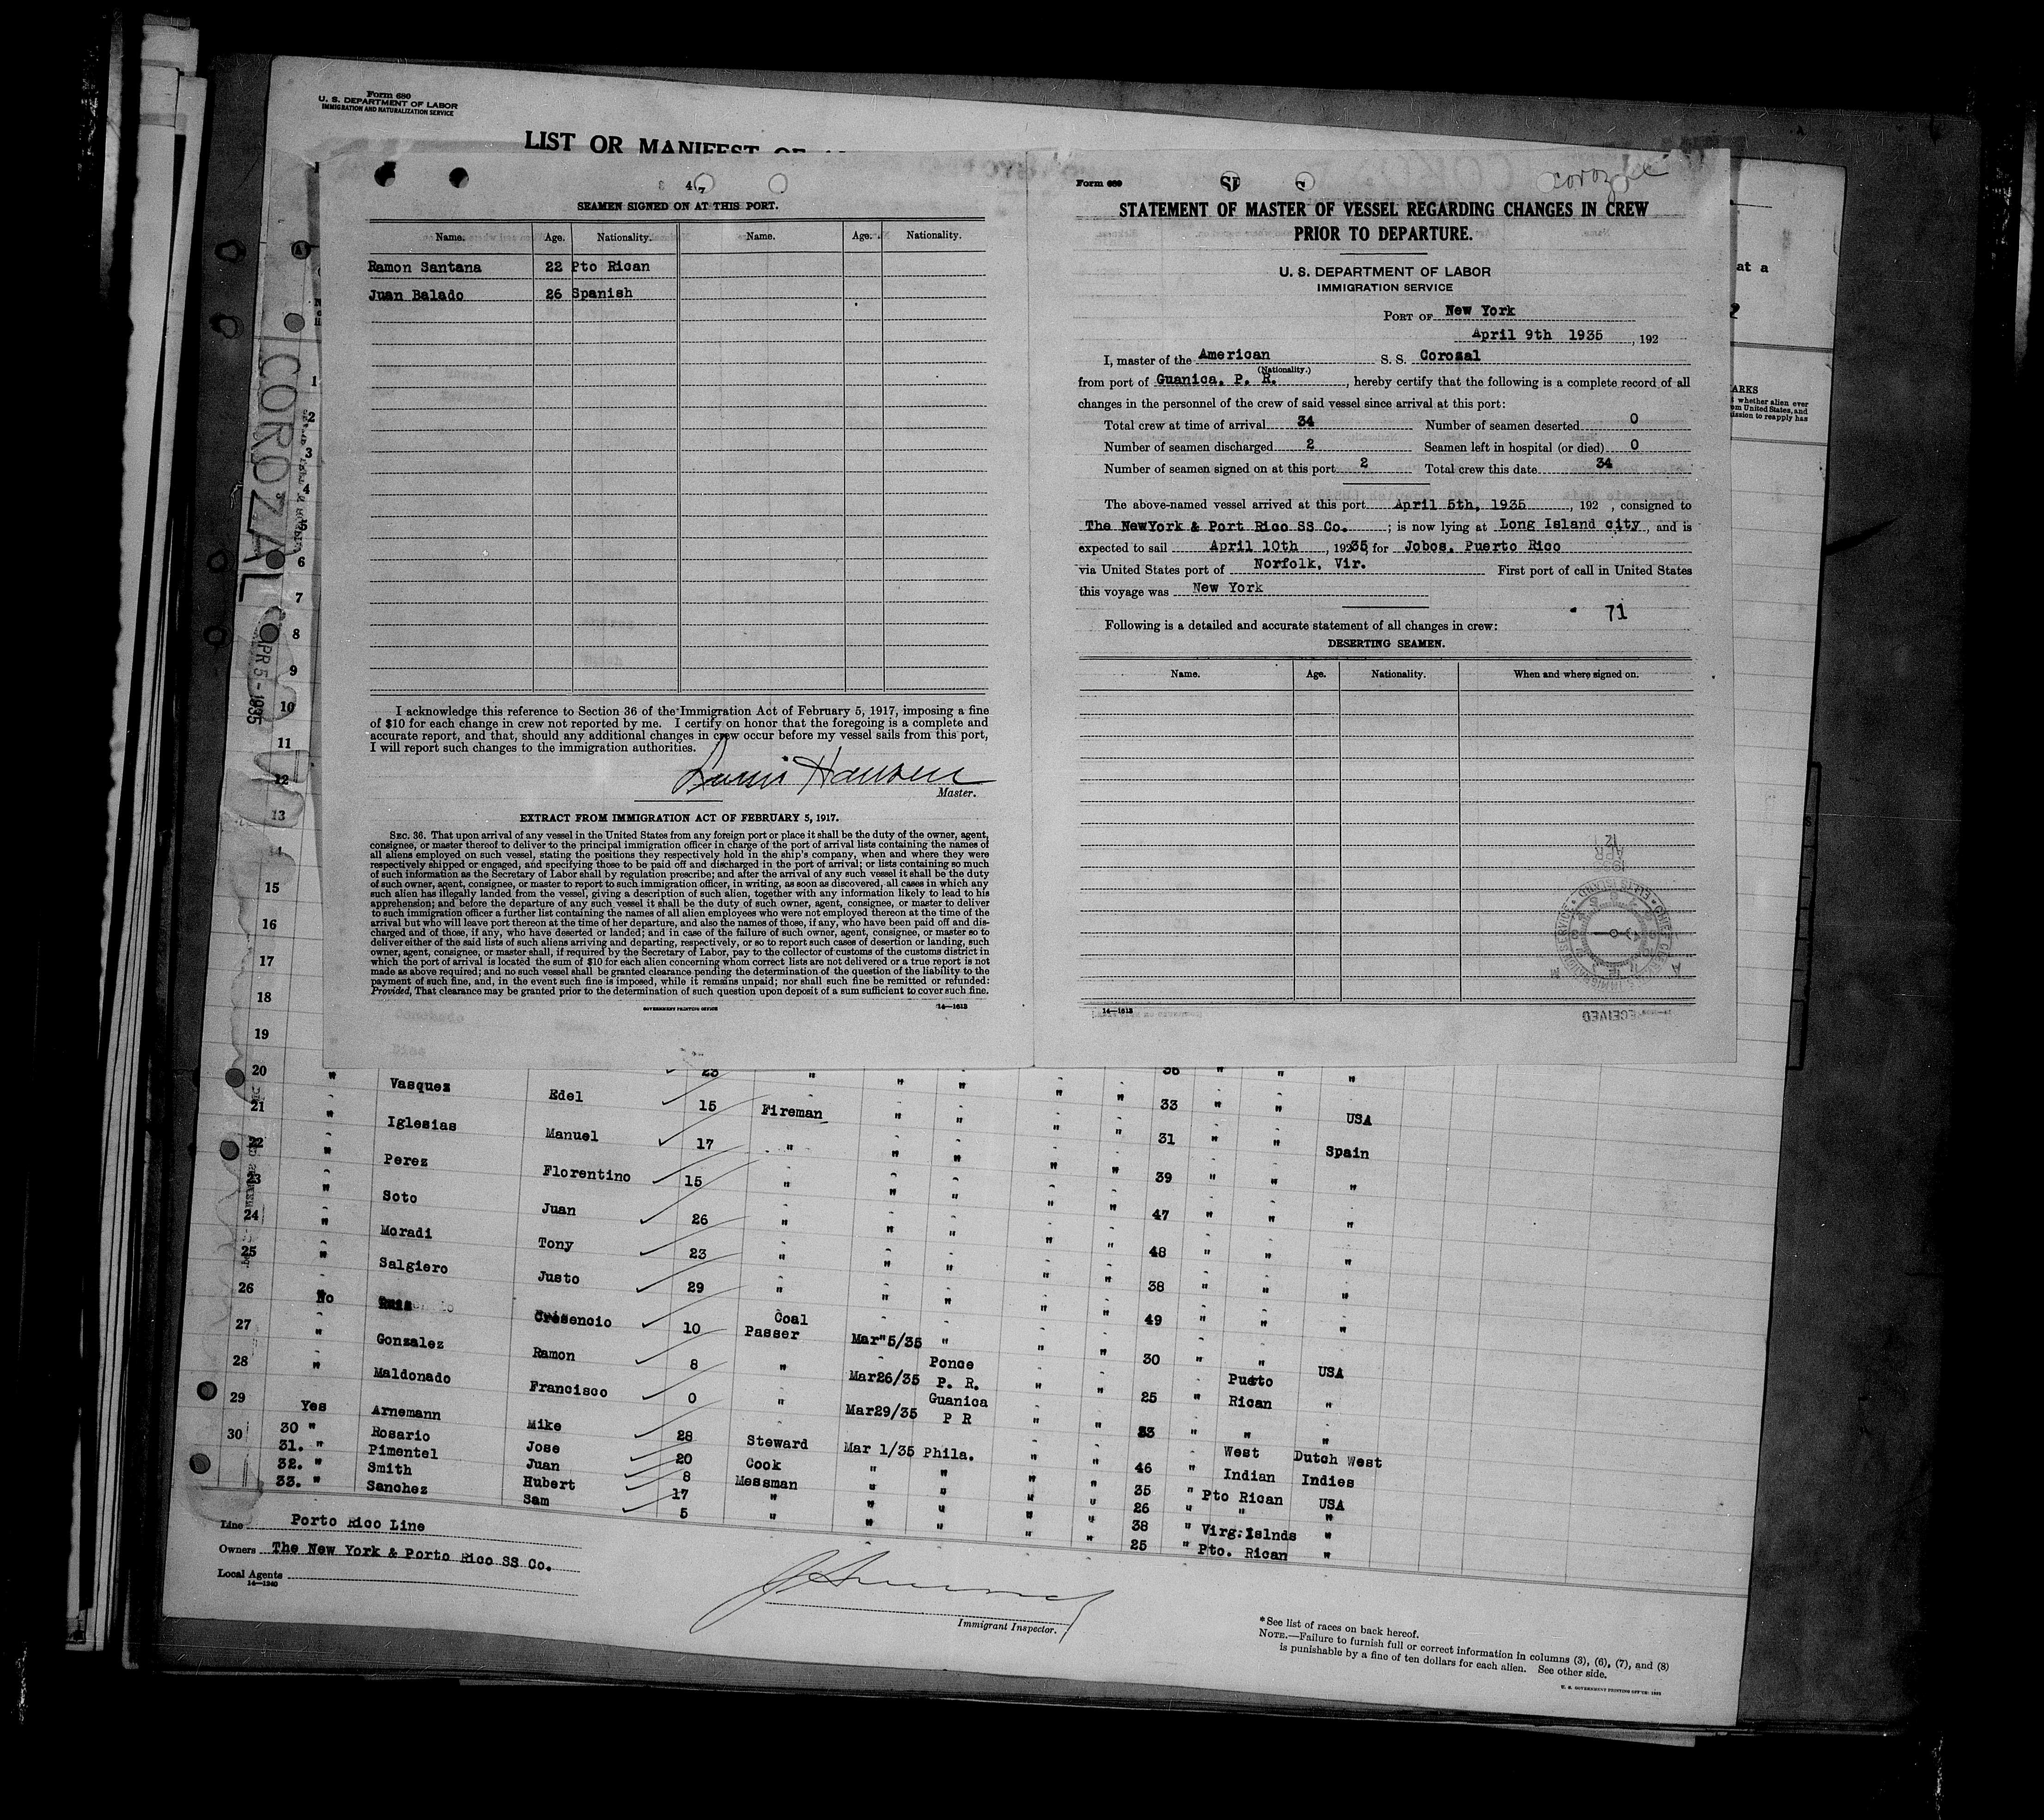 Form 680
U. S. DEPARTMENT OF LABOR
IMMIGRATION AND NATURALIZATION SERVICE
LIST OR MANIFEST OF
COROZAL
APR 5 - 1935
SEAMEN SIGNED ON AT THIS PORT.
Name. Age. Nationality. Name. Age. Nationality.
Ramon Santana 22 Pto Rican
Juan Balado 26 Spanish
I acknowledge this reference to Section 36 of the Immigration Act of February 5, 1917, imposing a fine
of $10 for each change in crew not reported by me. I certify on honor that the foregoing is a complete and
accurate report, and that, should any additional changes in crew occur before my vessel sails from this port,
I will report such changes to the immigration authorities.
Louis Hansen
Master.
EXTRACT FROM IMMIGRATION ACT OF FEBRUARY 5, 1917.
SEC. 36. That upon arrival of any vessel in the United States from any foreign port or place it shall be the duty of the owner, agent,
consignee, or master thereof to deliver to the principal immigration officer in charge of the port of arrival lists containing the names of
all aliens employed on such vessel, stating the positions they respectively hold in the ship's company, when and where they were
respectively shipped or engaged, and specifying those to be paid off and discharged in the port of arrival; or lists containing so much
of such information as the Secretary of Labor shall by regulation prescribe; and after the arrival of any such vessel it shall be the duty
of such owner, agent, consignee, or master to report to such immigration officer, in writing, as soon as discovered, all cases in which any
such alien has illegally landed from the vessel, giving a description of such alien, together with any information likely to lead to his
apprehension; and before the departure of any such vessel it shall be the duty of such owner, agent, consignee, or master to deliver
to such immigration officer a further list containing the names of all alien employees who were not employed thereon at the time of the
arrival but who will leave port thereon at the time of her departure, and also the names of those, if any, who have been paid off and dis-
charged and of those, if any, who have deserted or landed; and in case of the failure of such owner, agent, consignee, or master so to
deliver either of the said lists of such aliens arriving and departing, respectively, or so to report such cases of desertion or landing, such
owner, agent, consignee, or master shall, if required by the Secretary of Labor, pay to the collector of customs of the customs district in
which the port of arrival is located the sum of $10 for each alien concerning whom correct lists are not delivered or a true report is not
made as above required; and no such vessel shall be granted clearance pending the determination of the question of the liability to the
payment of such fine, and, in the event such fine is imposed, while it remains unpaid; nor shall such fine be remitted or refunded:
Provided, That clearance may be granted prior to the determination of such question upon deposit of a sum sufficient to cover such fine.
GOVERNMENT PRINTING OFFICE 14—1613
Form 689
Corozal
STATEMENT OF MASTER OF VESSEL REGARDING CHANGES IN CREW
PRIOR TO DEPARTURE.
U. S. DEPARTMENT OF LABOR
IMMIGRATION SERVICE
PORT OF New York
April 9th 1935, 192
I, master of the American S. S. Corozal
(Nationality.)
from port of Guanica. P. R., hereby certify that the following is a complete record of all
changes in the personnel of the crew of said vessel since arrival at this port:
Total crew at time of arrival 34 Number of seamen deserted 0
Number of seamen discharged 2 Seamen left in hospital (or died) 0
Number of seamen signed on at this port 2 Total crew this date 34
The above-named vessel arrived at this port April 5th, 1935, 192 , consigned to
The NewYork & Port Rico SS Co. ; is now lying at Long Island city, and is
expected to sail April 10th, 1935, for Jobos. Puerto Rico
via United States port of Norfolk, Vir. First port of call in United States
this voyage was New York
71
Following is a detailed and accurate statement of all changes in crew:
DESERTING SEAMEN.
Name. Age. Nationality. When and where signed on.
14—1613
RECEIVED
at a
ARKS
whether alien ever
om United States, and
ission to reapply has
1
2
3
4
5
6
7
8
9
10
11
12
13
15
16
17
18
19
20 " 23 " " " " " 36 " " "
21 " Vasquez Edel 15 Fireman " " " " 33 " " USA
22 " Iglesias Manuel 17 " " " " " 31 " " Spain
23 " Perez Florentino 15 " " " " " 39 " " "
24 " Soto Juan 26 " " " " " 47 " " "
25 " Moradi Tony 23 " " " " " 48 " " "
26 " Salgiero Justo 29 " " " " " 38 " " "
27 No Cresencio 10 Coal Passer Mar 5/35 " " " 49 " " "
28 " Gonzalez Ramon 8 " Mar26/35 Ponce P. R. " " 30 " " USA
29 " Maldonado Francisco 0 " Mar29/35 Guanica P R " " 25 " Puerto Rican "
30 Yes Arnemann Mike 28 Steward Mar 1/35 Phila. " " 33 " " "
30 " Rosario Jose 20 Cook " " " " 46 " West Indian Dutch West Indies
31. " Pimentel Juan 8 Messman " " " " 35 " Pto Rican USA
32. " Smith Hubert 17 " " " " " 26 " " "
33. " Sanchez Sam 5 " " " " " 38 " Virg:Islnds "
25 " Pto. Rican "
Line Porto Rico Line
Owners The New York & Porto Rico SS Co.
Local Agents
14—1240
Immigrant Inspector.
*See list of races on back hereof.
NOTE.—Failure to furnish full or correct information in columns (3), (6), (7), and (8)
is punishable by a fine of ten dollars for each alien. See other side.
U. S. GOVERNMENT PRINTING OFFICE: 1933